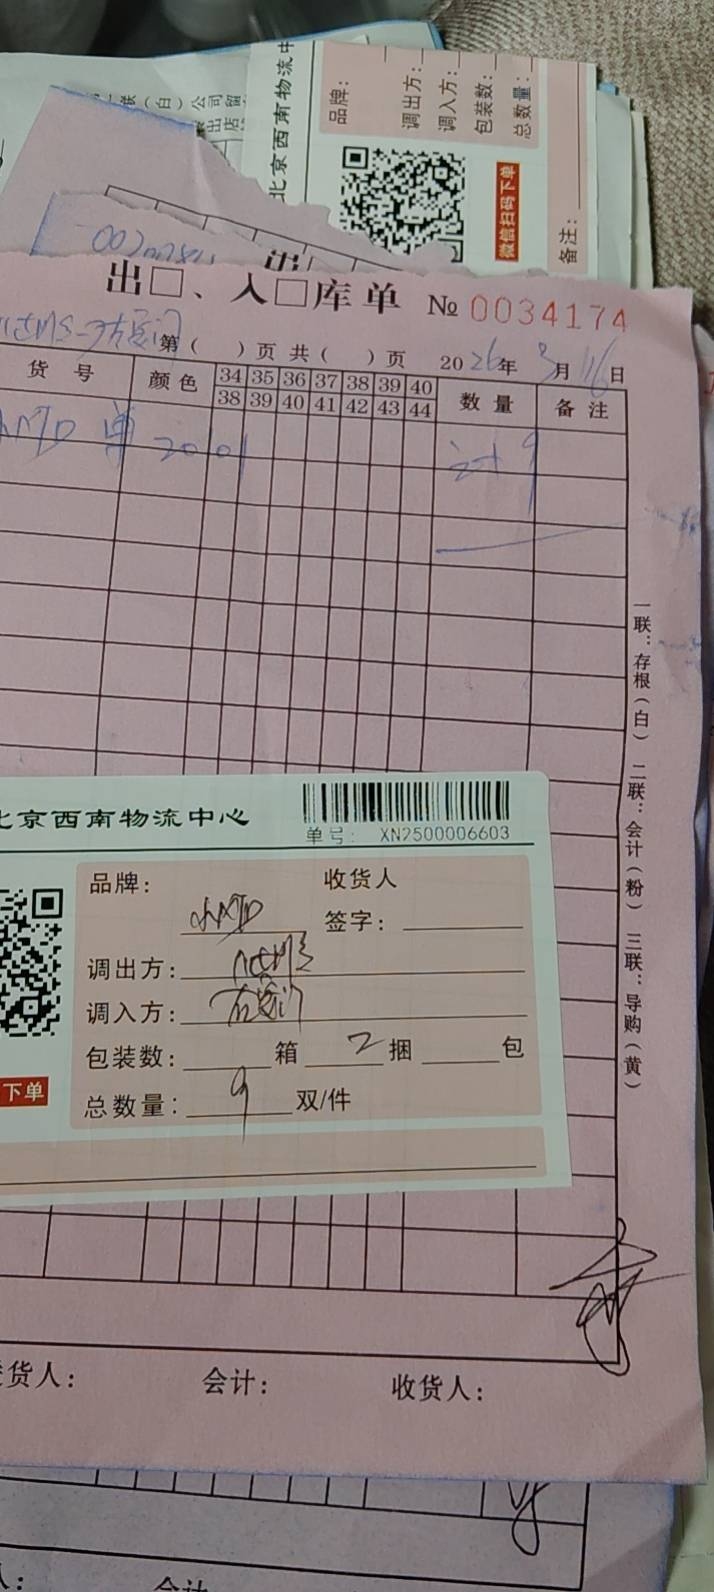 品牌：
调出方：
调入方：
包装数：
总数量：
微信扫码下单
备注：
北京西南物流中
（白）公司留
出店
出□、入□库单 № 0034174
第（ ）页 共（ ）页 2026年3月16日
货号 颜色 34 35 36 37 38 39 40 数量 备注
38 39 40 41 42 43 44
单 20101 计9
一联：存根（白） 二联：会计（粉） 三联：导购（黄）
北京西南物流中心
单号： XN2500006603
品牌： 收货人
签字：
调出方：
调入方：
包装数： 箱 2 捆 包
下单
总数量： 9 双/件
货人： 会计： 收货人：
人： 会计